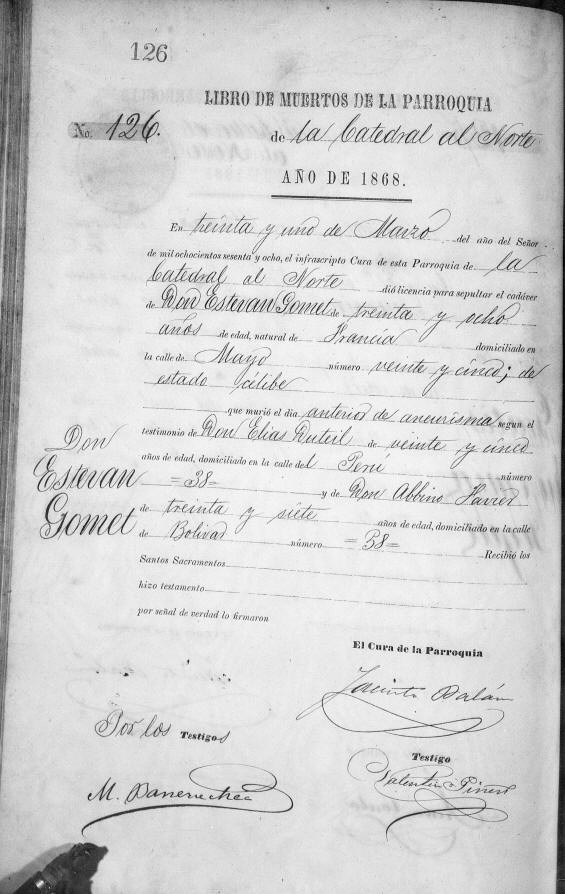 126
LIBRO DE MUERTOS DE LA PARROQUIA
No. 126. de la Catedral al Norte
AÑO DE 1868.
En treinta y uno de Marzo del año del Señor
de mil ochocientos sesenta y ocho, el infrascripto Cura de esta Parroquia de la
Catedral al Norte dió licencia para sepultar el cadáver
de Don Estevan Gomet de treinta y ocho
años de edad, natural de Francia domiciliado en
la calle de Mayo número veinte y cinco; de
estado célibe
que murió el dia anterior de aneurisma segun el
testimonio de Don Elias Duteil de veinte y cinco
años de edad, domiciliado en la calle del Perú número
=38= y de Don Albino Xavier
de treinta y siete años de edad, domiciliado en la calle
de Bolivar número =38= Recibió los
Santos Sacramentos
hizo testamento
por señal de verdad lo firmaron
Don
Estevan
Gomet
El Cura de la Parroquia
Jacinto Balán
Por los Testigos
Testigo
M.
Valentin Piñero